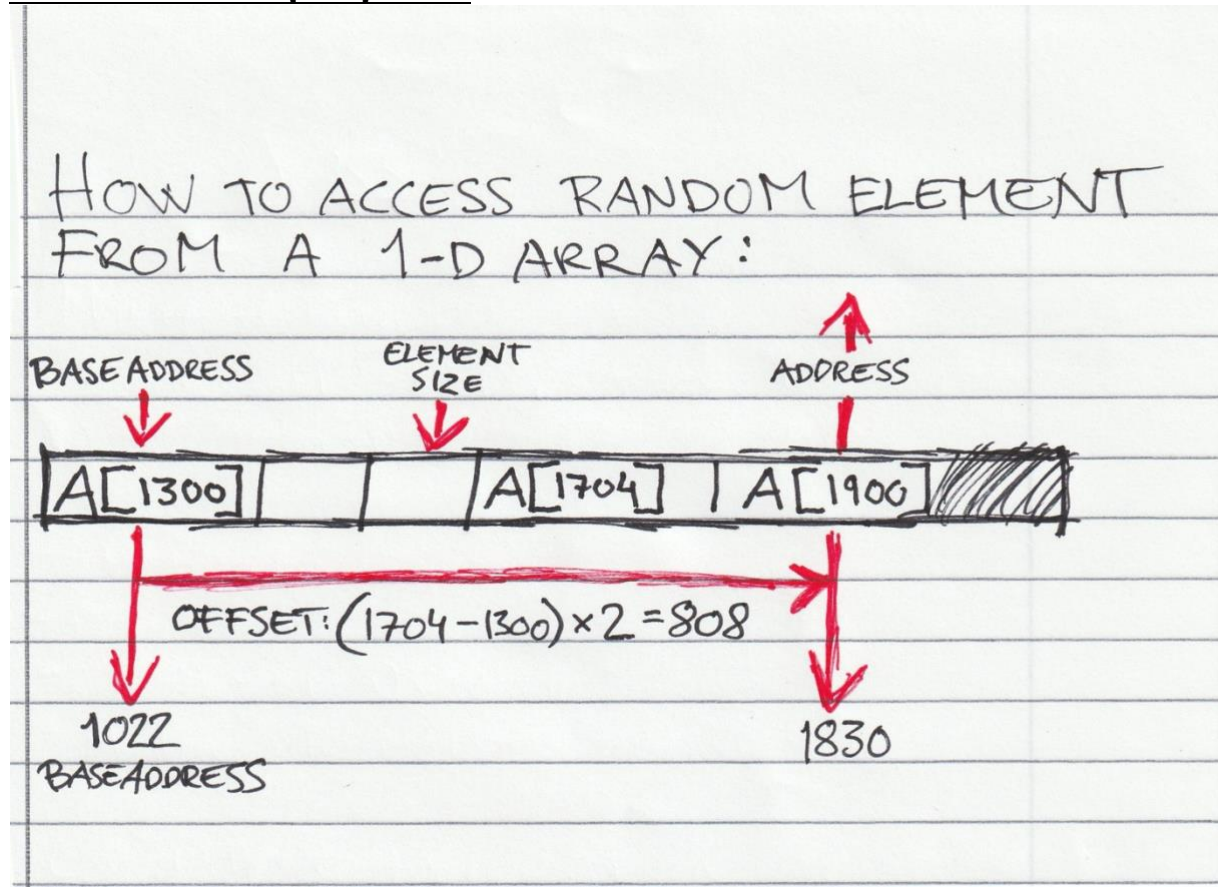 HOW TO ACCESS RANDOM ELEMENT
FROM A 1-D ARRAY:
BASEADDRESS
ELEMENT
SIZE
ADDRESS
A[1300]
A[1704]
A[1900]
OFFSET: (1704-1300)×2=808
1022
BASEADDRESS
1830